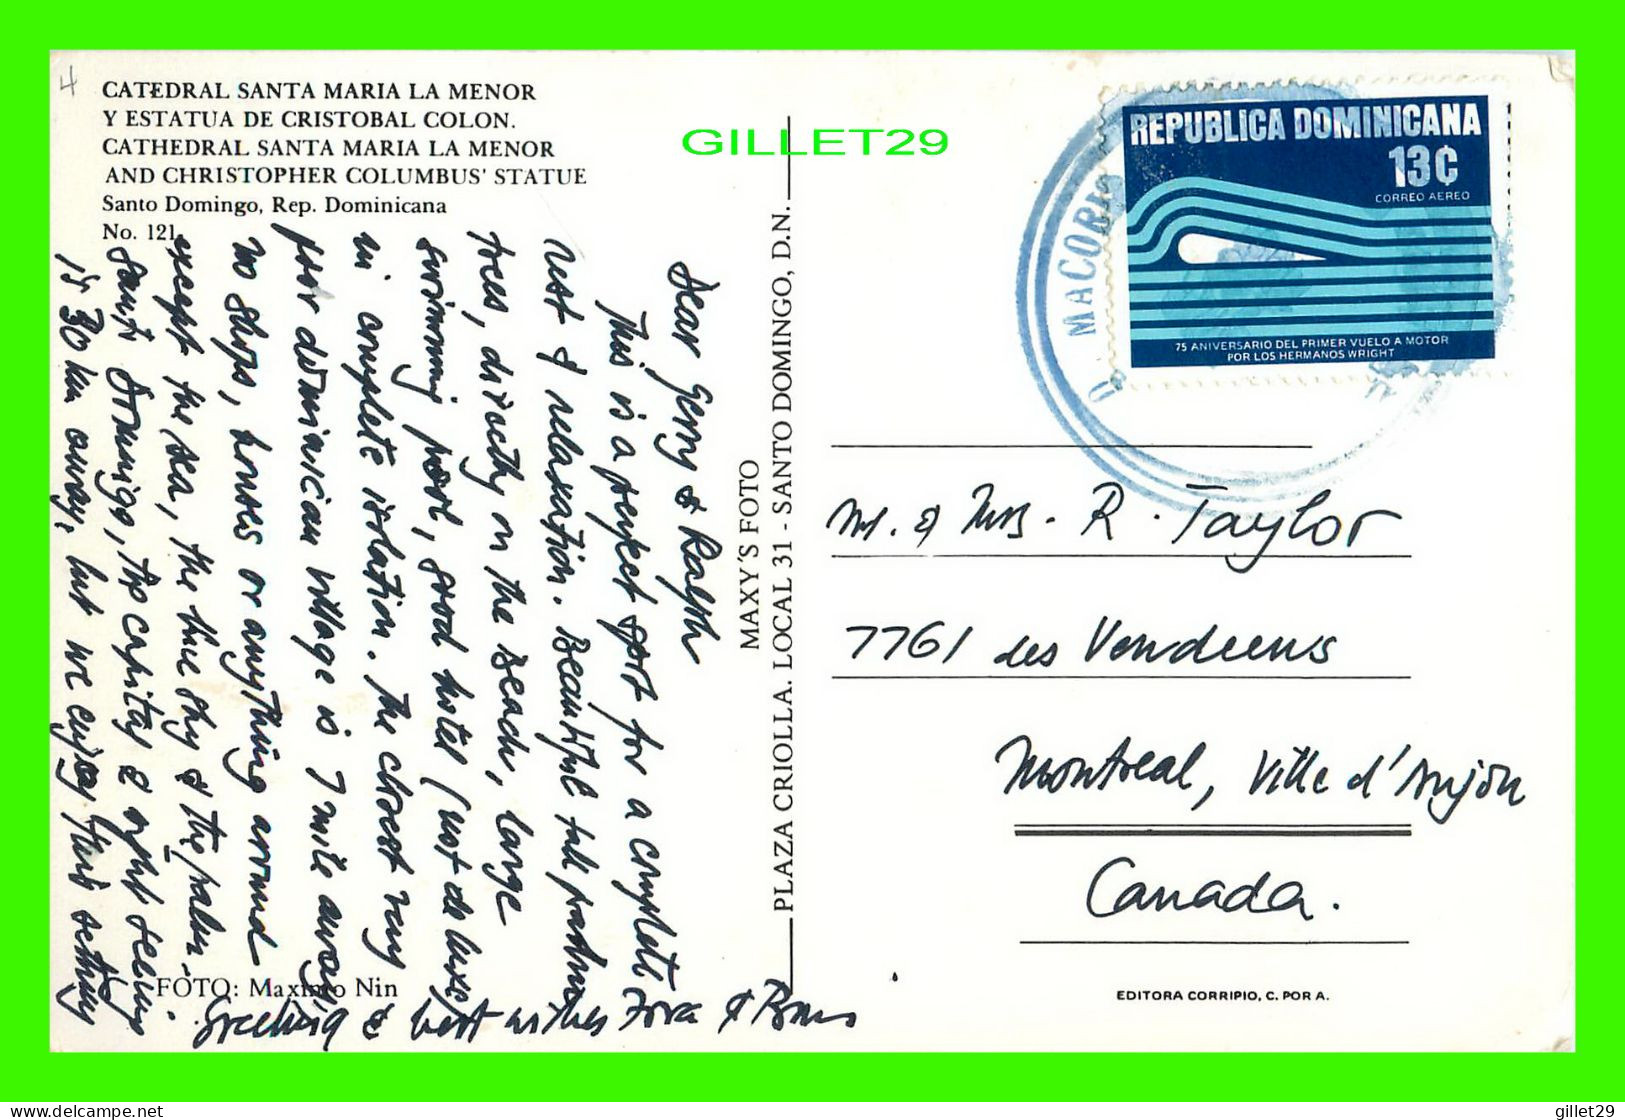 4
CATEDRAL SANTA MARIA LA MENOR
Y ESTATUA DE CRISTOBAL COLON.
CATHEDRAL SANTA MARIA LA MENOR
AND CHRISTOPHER COLUMBUS' STATUE
Santo Domingo, Rep. Dominicana
No. 121
GILLET29
Dear Gerry & Ralph
This is a perfect spot for a complete
rest & relaxation. Beautiful tall palm
trees, directly on the beach, large
swimming pool, good hotel (not de luxe)
in complete isolation. The closest very
poor dominician village is 1 mile away,
no shops, houses or anything around
except the sea, the blue sky & the palm.
Santo Domingo, the capital & sight seeing
is 30 km away, but we enjoy this setting
Greeting & best wishes
FOTO: Maximo Nin
MAXY'S FOTO
PLAZA CRIOLLA. LOCAL 31 - SANTO DOMINGO, D.N.
REPUBLICA DOMINICANA
13¢
CORREO AEREO
75 ANIVERSARIO DEL PRIMER VUELO A MOTOR
POR LOS HERMANOS WRIGHT
MACORIS
Mr. & Mrs. R. Taylor
7761 des Vendeens
Montreal, Ville d'Anjou
Canada.
EDITORA CORRIPIO, C. POR A.
delcampe.net
gillet29